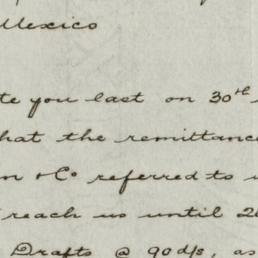 Mexico
te you last on 30th
hat the remittance
n & Co referred to
reach us until 2
Drafts @ 90d/s, as